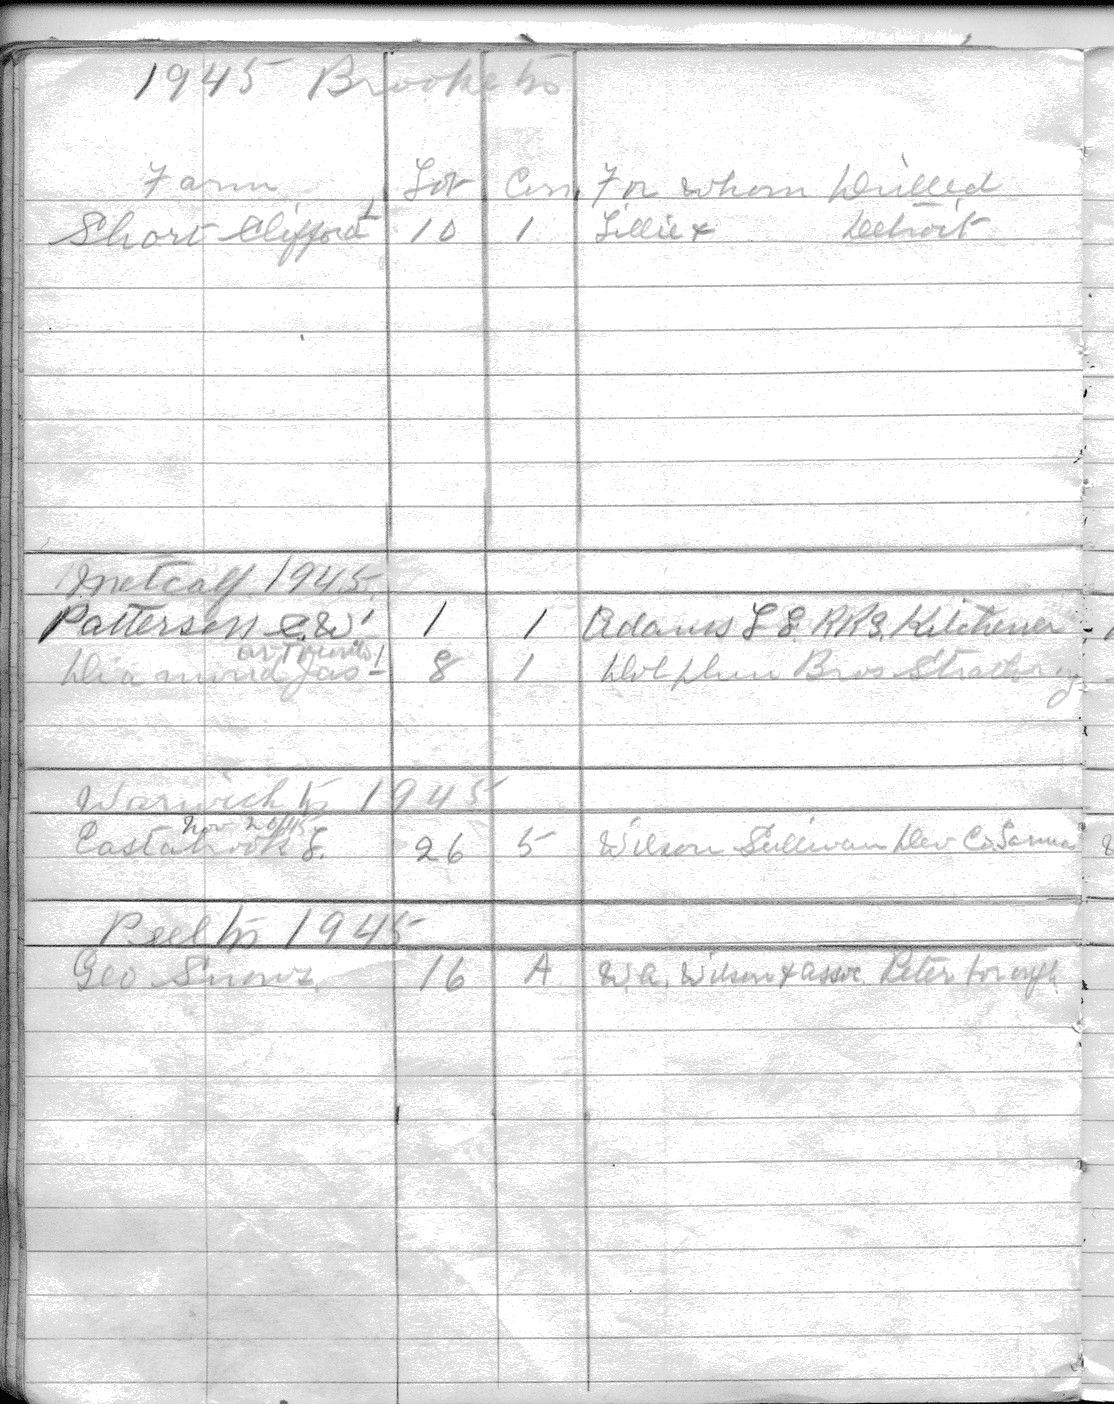 1945 Brooke Tp
Farm Lot Con. For whom Drilled
Short Clifford 1 10 1 Lillie & Detroit
Metcalf 1945
Patterson C.W. 1 1 1 Adams L S. RR3. Kitchener
Diamond Jas 1 8 1 Dolphin Bros Strathroy
Warwick Tp 1945
Nov 20/45
Eastabrook S. 26 5 Wilson Sullivan Dev Co. Sarnia
Peel Tp 1945
Geo Snows. 16 A W.A. Wilson & assoc. Peterborough